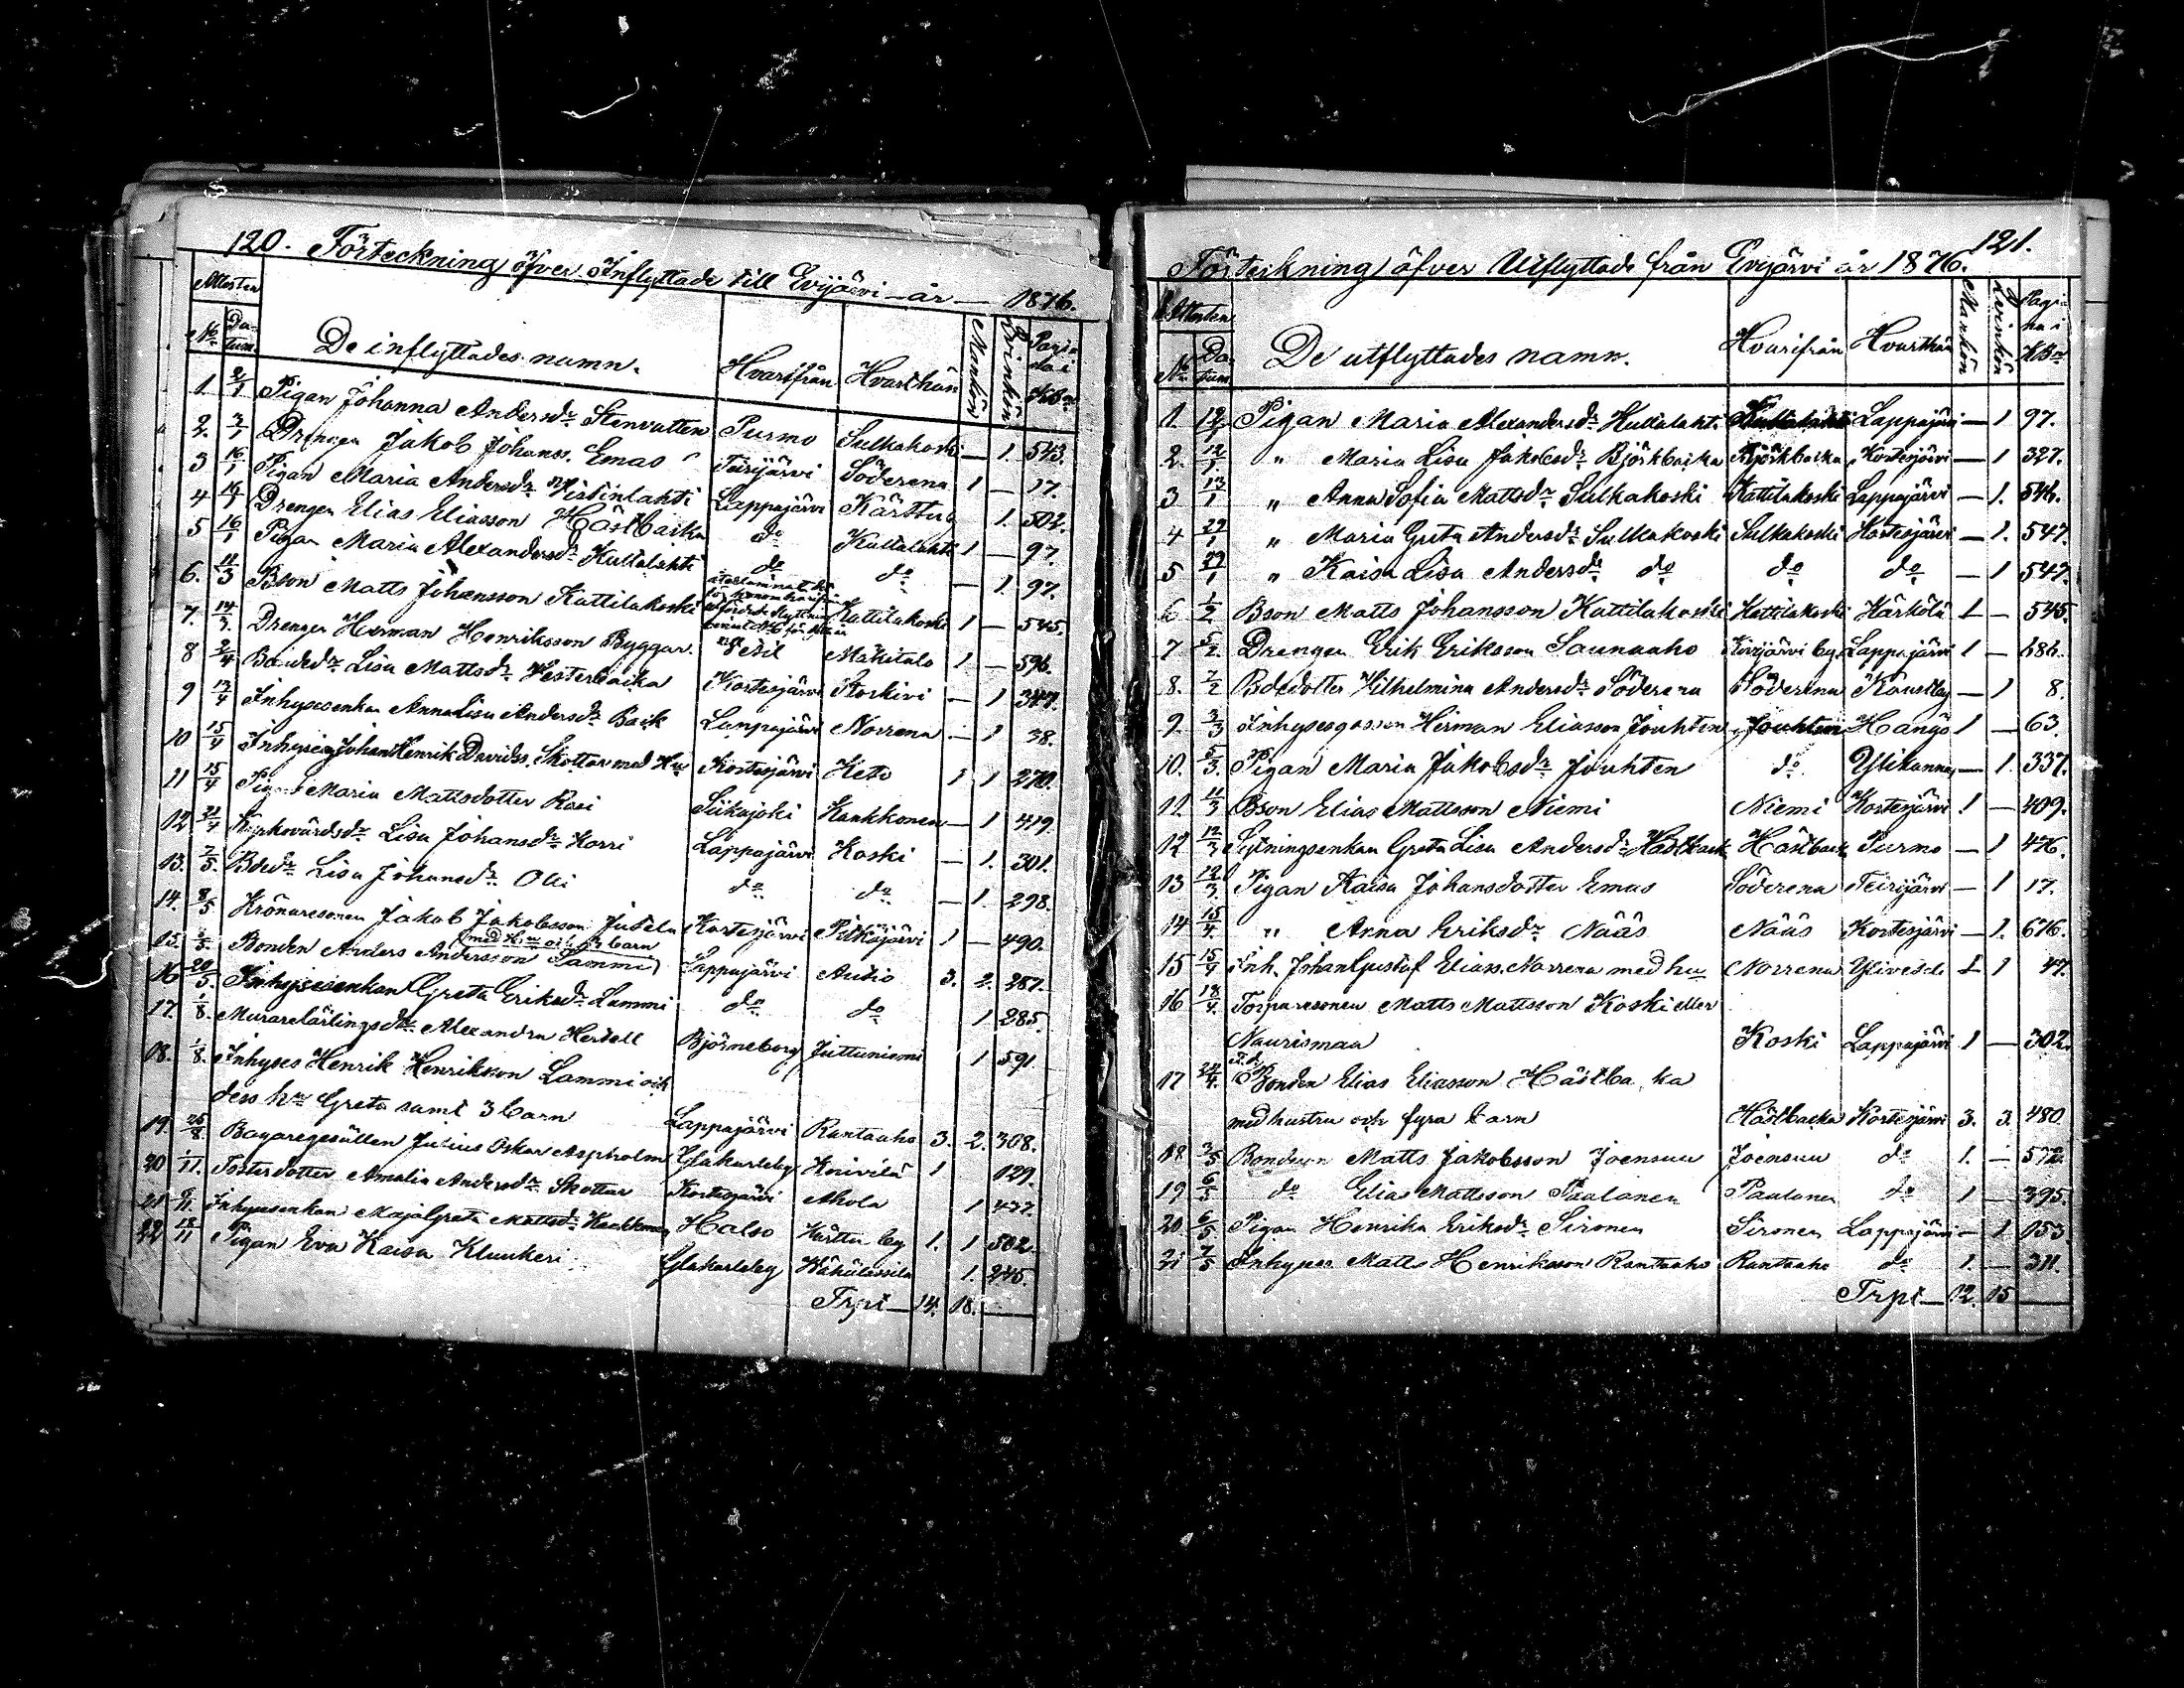 120. Förteckning öfver Inflyttade till Evijärvi år 1876.
Attesten
No Datum De inflyttades namn. Hvarifrån Hvarthän Mankön Qvinkön Pagina i KBn
1. 2/1 Pigan Johanna Andersdr Stenvatten Purmo Sulkakoski — 1. 543.
2. 3/1 Drengen Jakob Johanss. Emas Teirijärvi Söderena 1 — 17.
3 16/1 Pigan Maria Andersdr Lappajärvi Kärttu — 1. 502.
4 16/1 Drengen Elias Eliasson Hästbacka do Kuttalahti 1 — 97.
5 16/1 Pigan Maria Alexandersdr Kuttalahti do do — 1. 97.
6. 11/3 Bson Matts Johansson Kattilakoski Kattilakoski 1 — 545.
7. 14/3 Drengen Herman Henriksson Byggar. Mäkitalo 1. — 596.
8 2/4 Bondedr Lisa Mattsdr Vesterbacka Kortesjärvi Storkivi — 1 347.
9 13/4 Inhysesenkan AnnaLisa Andersdr Back Lappajärvi Norrena — 1 38.
10 15/4 Inhysing Johan Henrik Davidss. Skottar med Hu Kortesjärvi Keto 1 1 270.
11 15/4 Pigan Maria Mattsdotter Rasi Siikajoki Kaukkonen — 1 419.
12 21/4 Kyrkovärdsdr Lisa Johansdr Korri Lappajärvi Koski — 1. 301.
13. 7/5. Bdedr Lisa Johansdr Olli do do — 1. 298.
14. 8/5 Krönaresonen Jakob Jakobsson Jutela Kortesjärvi Pitkäjärvi 1 — 490.
med Hru och 3 barn
15. Bonden Anders Andersson Sammi Lappajärvi Autio 3. 2. 287.
16 20/5. Inhysesenkan Greta Eriksdr Lammi do do 1 285.
17. 1/8. Murarelärlingsdr Alexandra Hertell Björneborg Juttuniemi 1 591.
18. 1/8. Inhyses Henrik Henriksson Lammi och
dess hru Greta samt 3 barn Lappajärvi Rantaaho 3. 2. 308.
19. 25/8. Bagaregesällen Julius Oskar Aspholm Glakarleby Knivilä 1 129.
20 1/11. Fosterdotter Amalia Andersdr Skottar Kortesjärvi Ahola 1 477.
21 9/11. Inhysesenkan MajaGreta Mattsdr Kaukkonen Halso Kärttu by 1. 1 502.
22 18/11 Pigan Eva Kaisa Kluukeri Glakarleby 1. 245.
Trpt — 14. 18. —
121.
Förteckning öfver Utflyttade från Evijärvi år 1876.
Attesten
No Datum De utflyttades namn. Hvarifrån Hvarthän Mankön Qvinkön Pagina i KBn
1. 12/1 Pigan Maria Alexandersdr Kuttalahti Kuttalahti Lappajärvi — 1 97.
2. 12/1. " Maria Lisa Jakobsdr Björkbacka Björkbacka Kortesjärvi — 1 327.
3 13/1 " Anna Sofia Mattsdr Sulkakoski Kattilakoski Lappajärvi — 1. 546.
4 22/1 " Maria Greta Andersdr Sulkakoski Sulkakoski Kortesjärvi — 1. 547.
5 22/1 " Kaisa Lisa Andersdr do do do — 1 547.
6 1/2 Bson Matts Johansson Kattilakoski Kattilakoski Kärkölä 1 — 545.
7 5/2. Drengen Erik Eriksson Saunaaho Kivijärvi by Lappajärvi 1 — 686.
8. 7/2 Bdedotter Vilhelmina Andersdr Söderena Söderena Kaustby — 1 8.
9. 3/3 Inhysesgossen Herman Eliasson Jouhten Jouhten Hangö 1 — 63.
10. 5/3. Pigan Maria Jakobsdr Jouhten do Ylikannus — 1. 337.
11. 11/3 Bson Elias Mattsson Niemi Niemi Kortesjärvi 1 — 409.
12 12/3 Sytningsenkan Greta Lisa Andersdr Hästback Hästback Purmo — 1 476.
13 12/3 Pigan Kaisa Johansdotter Emas Söderena Teirijärvi — 1 17.
14 15/4 " Anna Eriksdr Nääs Nääs Kortesjärvi — 1. 676.
15 15/4 Inh. Johan Gustaf Eliass. Norrena med hu Norrena Ylivesi 1 1 47.
16 18/4. Torparesonen Matts Mattsson Koski eller
Naurismaa Koski Lappajärvi 1 — 302.
17 24/4. F.d. Bonden Elias Eliasson Hästbacka
med hustru och fyra barn Hästbacka Kortesjärvi 3. 3. 480.
18 3/5 Bondeson Matts Jakobsson Joensuu Joensuu do 1. — 572.
19 6/5 do Elias Mattsson Paalanen Paalanen do 1 — 395.
20. 6/5. Pigan Henrika Eriksdr Sironen Sironen Lappajärvi — 1 153
21 7/5 Inhyses Matts Henriksson Rantaaho Rantaaho do 1. — 311.
Trpt — 12. 15